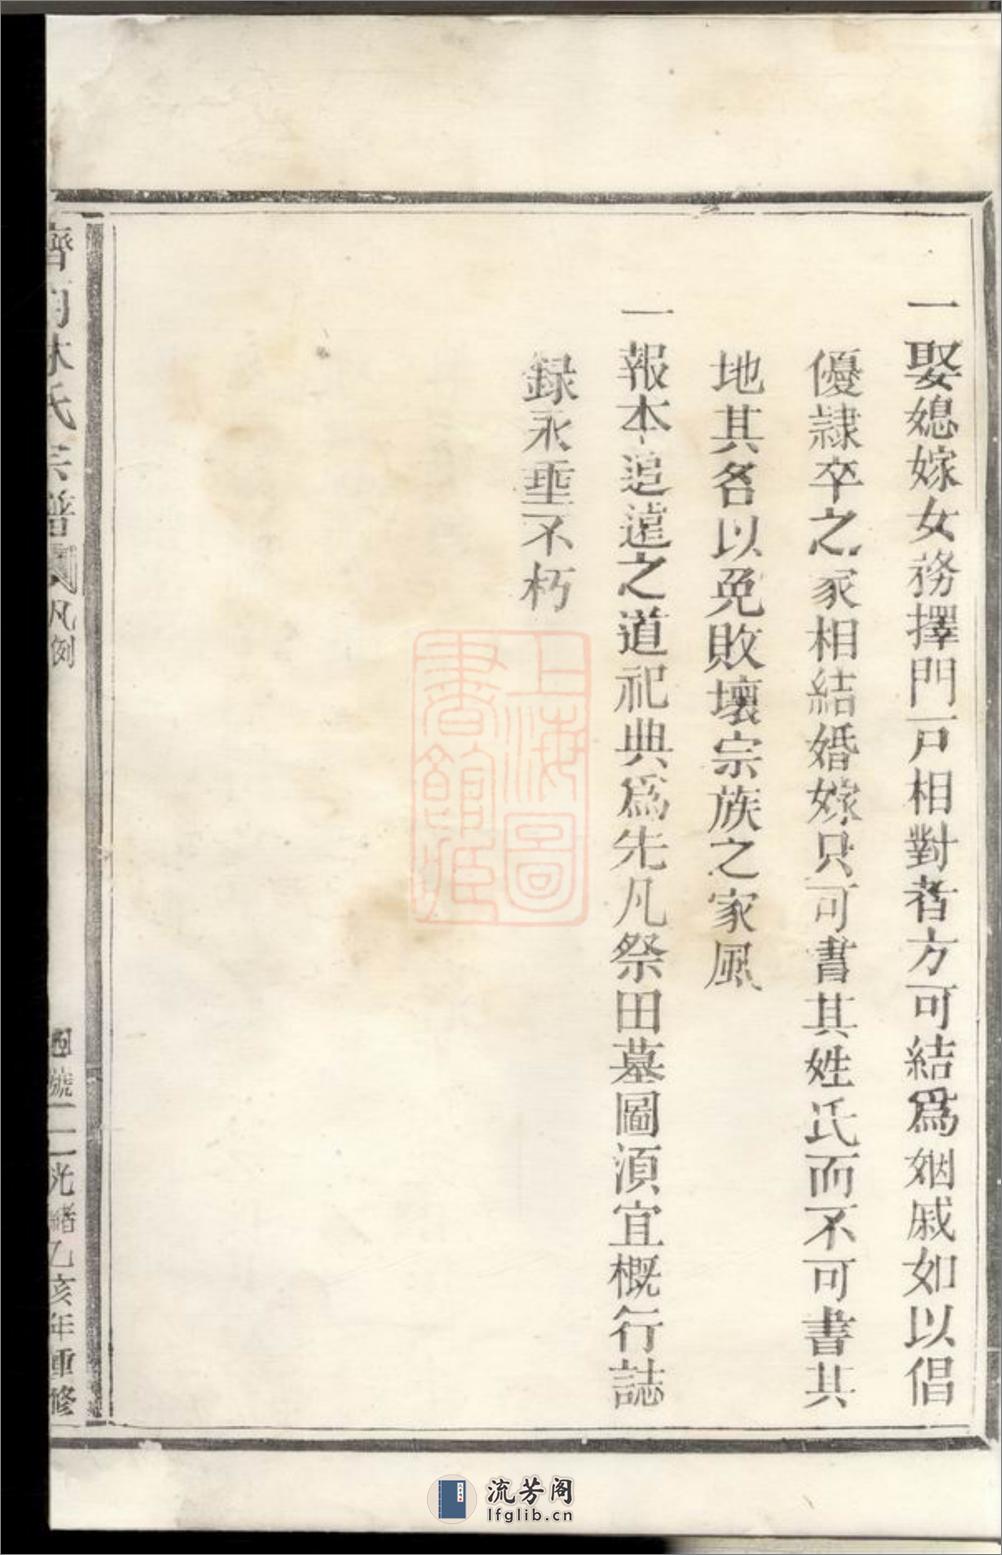 一娶媳嫁女務擇門戸相對者方可結爲姻戚如以倡
優隷卒之家相結婚嫁只可書其姓氏而不可書其
地其各以免敗壞宗族之家風
一報本追遠之道祀典爲先凡祭田墓圖須宜概行誌
録永垂不朽
林氏宗譜 凡例
光緒乙亥年重修
上海圖書館藏
流芳阁
lfglib.cn